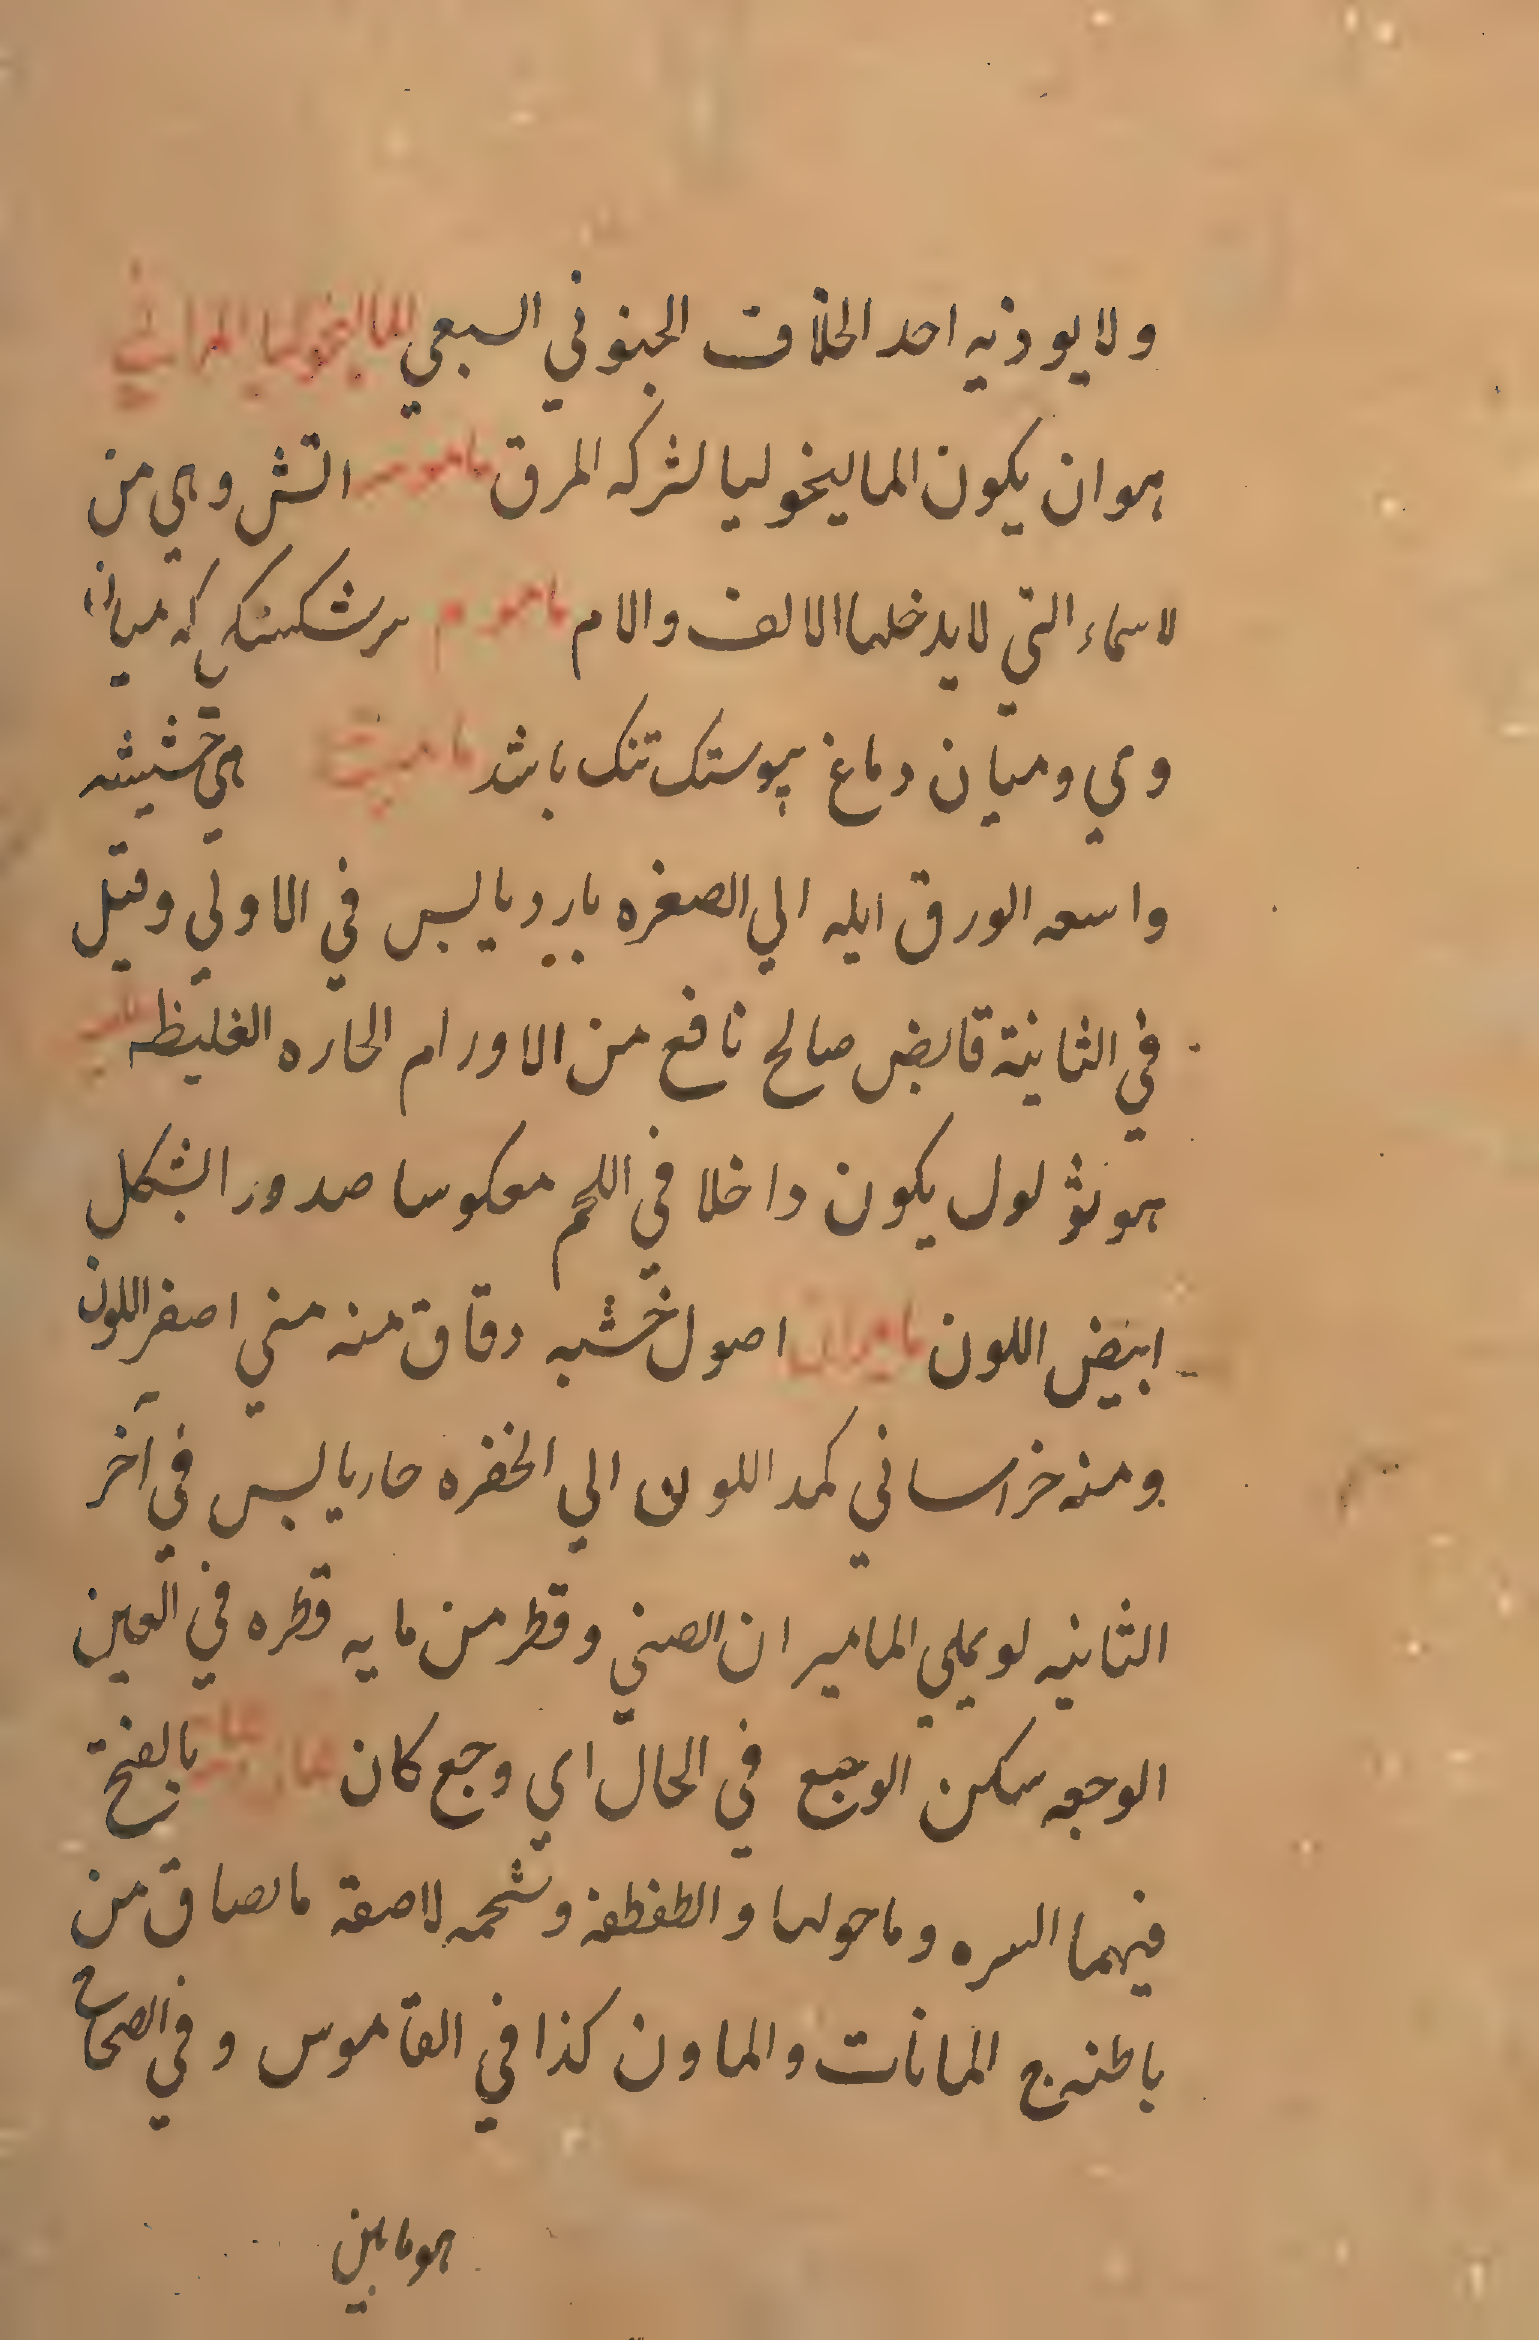 ولا يوذيه احد الخلاف الجنوني السبعي الماليخوليا المراقي
هو ان يكون الماليخوليا لشركه المرق ماموسه اتش وهي من
لاسماء التي لا يدخلها الالف والام ماموم سرشكستكي كه ميان
وي وميان دماغ پوستك تنك باشد ماميثا هي حشيشه
واسعه الورق ايله الي الصغره بارد يا لبس في الاولي وقيل
في الثانية قابض صالح نافع من الاورام الحاره الغليظه
هو ثولول يكون داخلا في اللحم معكوسا صدور الشكل
ابيض اللون ماميران اصول خشبه دقاق منه صني اصفر اللون
ومنه خراساني كمد اللون الي الخفره حار يا لبس في آخر
الثانيه لو يملي الماميران الصني وقطر من مايه قطره في العين
الوجعه سكن الوجع في الحال اي وجع كان بالفتح
فيهما السره وما حولها والطفطفه وشحمه لاصقة مالصاق من
باطنه ج المانات والماون كذا في القاموس وفي الصحاح
هو مابين